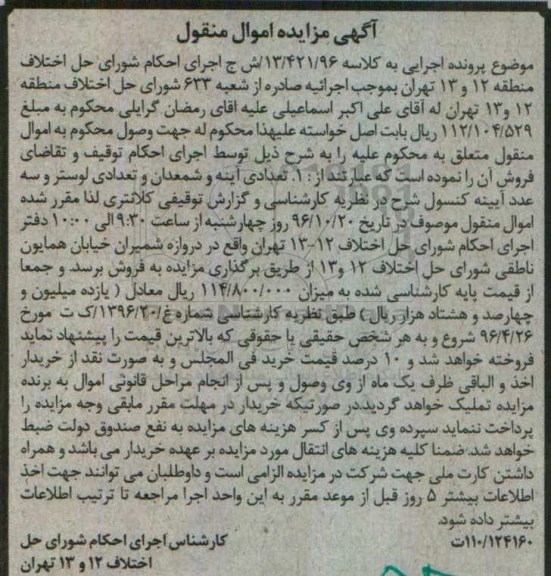 آگهی مزایده اموال منقول
موضوع پرونده اجرایی به کلاسه ۱۳/۴۲۱/۹۶/ش ج اجرای احکام شورای حل اختلاف
منطقه ۱۲ و ۱۳ تهران بموجب اجرائیه صادره از شعبه ۶۳۳ شورای حل اختلاف منطقه
۱۲ و۱۳ تهران له آقای علی اکبر اسماعیلی علیه اقای رمضان گرایلی محکوم به مبلغ
۱۱۲/۱۰۴/۵۲۹ ریال بابت اصل خواسته علیهذا محکوم له جهت وصول محکوم به اموال
منقول متعلق به محکوم علیه را به شرح ذیل توسط اجرای احکام توقیف و تقاضای
فروش آن را نموده است که عبارتند از : ۱. تعدادی آینه و شمعدان و تعدادی لوستر و سه
عدد آیینه کنسول شرح در نظریه کارشناسی و گزارش توقیفی کلانتری لذا مقرر شده
اموال منقول موصوف در تاریخ ۹۶/۱۰/۲۰ روز چهارشنبه از ساعت ۹:۳۰ الی ۱۰:۰۰ دفتر
اجرای احکام شورای حل اختلاف ۱۲-۱۳ تهران واقع در دروازه شمیران خیابان همایون
ناطقی شورای حل اختلاف ۱۲ و۱۳ از طریق برگذاری مزایده به فروش برسد و جمعا
از قیمت پایه کارشناسی شده به میزان ۱۱۴/۸۰۰/۰۰۰ ریال معادل ( یازده میلیون و
چهارصد و هشتاد هزار ریال ) طبق نظریه کارشناسی شماره غ/۱۳۹۶/۲۰/ک ت مورخ
۹۶/۴/۲۶ شروع و به هر شخص حقیقی یا حقوقی که بالاترین قیمت را پیشنهاد نماید
فروخته خواهد شد و ۱۰ درصد قیمت خرید فی المجلس و به صورت نقد از خریدار
اخذ و الباقی ظرف یک ماه از وی وصول و پس از انجام مراحل قانونی اموال به برنده
مزایده تملیک خواهد گردید.در صورتیکه خریدار در مهلت مقرر مابقی وجه مزایده را
پرداخت ننماید سپرده وی پس از کسر هزینه های مزایده به نفع صندوق دولت ضبط
خواهد شد.ضمنا کلیه هزینه های انتقال مورد مزایده بر عهده خریدار می باشد و همراه
داشتن کارت ملی جهت شرکت در مزایده الزامی است و داوطلبان می توانند جهت اخذ
اطلاعات بیشتر ۵ روز قبل از موعد مقرر به این واحد اجرا مراجعه تا ترتیب اطلاعات
بیشتر داده شود.
۱۱۰/۱۲۴۱۶۰ت
کارشناس اجرای احکام شورای حل
اختلاف ۱۲ و ۱۳ تهران